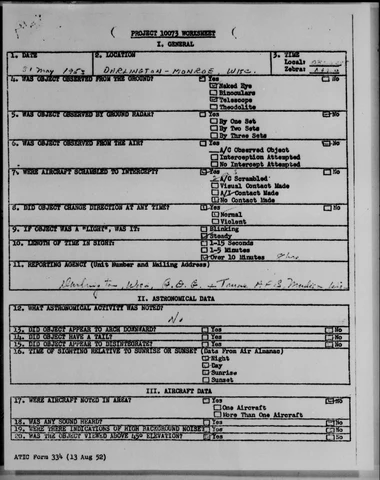 ( PROJECT 10073 WORKSHEET )
I. GENERAL
1. DATE 2. LOCATION 3. TIME
31 May 1953 DARLINGTON - MONROE, WISC. Local:
Zebra:
4. WAS OBJECT OBSERVED FROM THE GROUND? Yes No
Naked Eye
Binoculars
Telescope
Theodolite
5. WAS OBJECT OBSERVED BY GROUND RADAR? Yes No
By One Set
By Two Sets
By Three Sets
6. WAS OBJECT OBSERVED FROM THE AIR? Yes No
A/C Observed Object
Interception Attempted
No Intercept Attempted
7. WERE AIRCRAFT SCRAMBLED TO INTERCEPT? Yes No
A/C Scrambled
Visual Contact Made
A/I Contact Made
No Contact Made
8. DID OBJECT CHANGE DIRECTION AT ANY TIME? Yes No
Normal
Violent
9. IF OBJECT WAS A "LIGHT", WAS IT: Blinking
Steady
10. LENGTH OF TIME IN SIGHT: 1-15 Seconds
1-5 Minutes
Over 10 Minutes
11. REPORTING AGENCY (Unit Number and Mailing Address)
Darlington, Wisc, G.O.C. Truax A.F.B. Madison Wis.
II. ASTRONOMICAL DATA
12. WHAT ASTRONOMICAL ACTIVITY WAS NOTED?
No
13. DID OBJECT APPEAR TO ARCH DOWNWARD? Yes No
14. DID OBJECT HAVE A TAIL? Yes No
15. DID OBJECT APPEAR TO DISINTEGRATE? Yes No
16. TIME OF SIGHTING RELATIVE TO SUNRISE OR SUNSET (Data From Air Almanac)
Night
Day
Sunrise
Sunset
III. AIRCRAFT DATA
17. WERE AIRCRAFT NOTED IN AREA? Yes No
One Aircraft
More Than One Aircraft
18. WAS ANY SOUND HEARD? Yes No
19. WERE THERE INDICATIONS OF HIGH BACKGROUND NOISE? Yes No
20. WAS THE OBJECT VIEWED ABOVE 45° ELEVATION? Yes No
ATIC Form 334 (13 Aug 52)